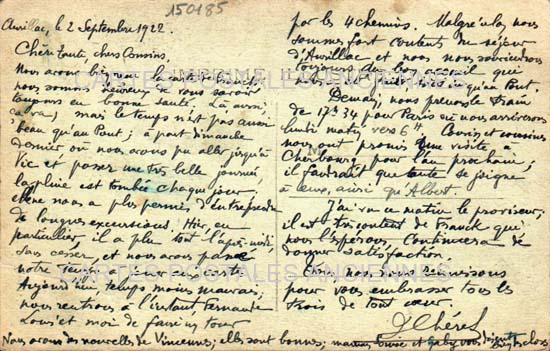 150185
Aurillac, le 2 Septembre 1922.
Chère tante, chers Cousins,
Nous avons bien
nous sommes heureux de vous savoir
toujours en bonne santé. Là aussi,
ça va, mais le temps n'est pas aussi
beau qu'au Pont; à part dimanche
dernier où nous avons pu aller jusqu'à
Vic et passer une très belle journée,
la pluie est tombée chaque jour,
et ne nous a plus permis d'entreprendre
de longues excursions. Hier, en
particulier, il a plu tout l'après-midi
sans cesser, et nous avons passé
notre
Aujourd'hui temps moins mauvais;
nous rentrons à l'instant, Fernande
Louis et moi de faire un tour
par les 4 chemins. Malgré cela, nous
sommes fort contents du séjour
d'Aurillac et nous nous souviendrons
toujours du bon accueil que
qu'au Pont.
Demain, nous prenons le train
de 17h34 pour Paris où nous arriverons
lundi matin vers 6h. Cousins et cousines
nous ont promis une visite à
Cherbourg pour l'an prochain;
il faudrait que tante se joigne
à eux, ainsi qu'Albert.
J'ai vu ce matin le proviseur;
il est très content de Franck qui
nous l'espérons, continuera de
donner satisfaction.
Chers cousins, nous nous réunissons
pour vous embrasser tous les
trois de tout cœur.
J Chéret
Nous avons des nouvelles de Vincennes; elles sont bonnes; maman, Ninie et Gaby vous
CARTES POSTALES ANCIENNES
CARTES POSTALES ANCIENNES